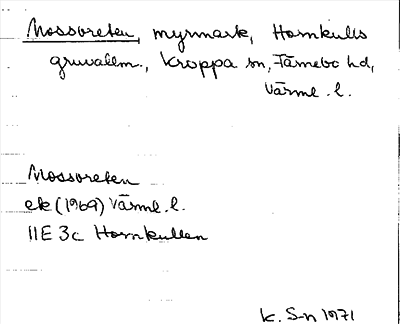 Mossoreten, myrmark, Hornkulls
gruvallm., Kroppa sn, Färnebo hd,
Värml. l.
Mossoreten
ek (1969) Värml. l.
11E 3c Hornkullen
K. S-n 1971